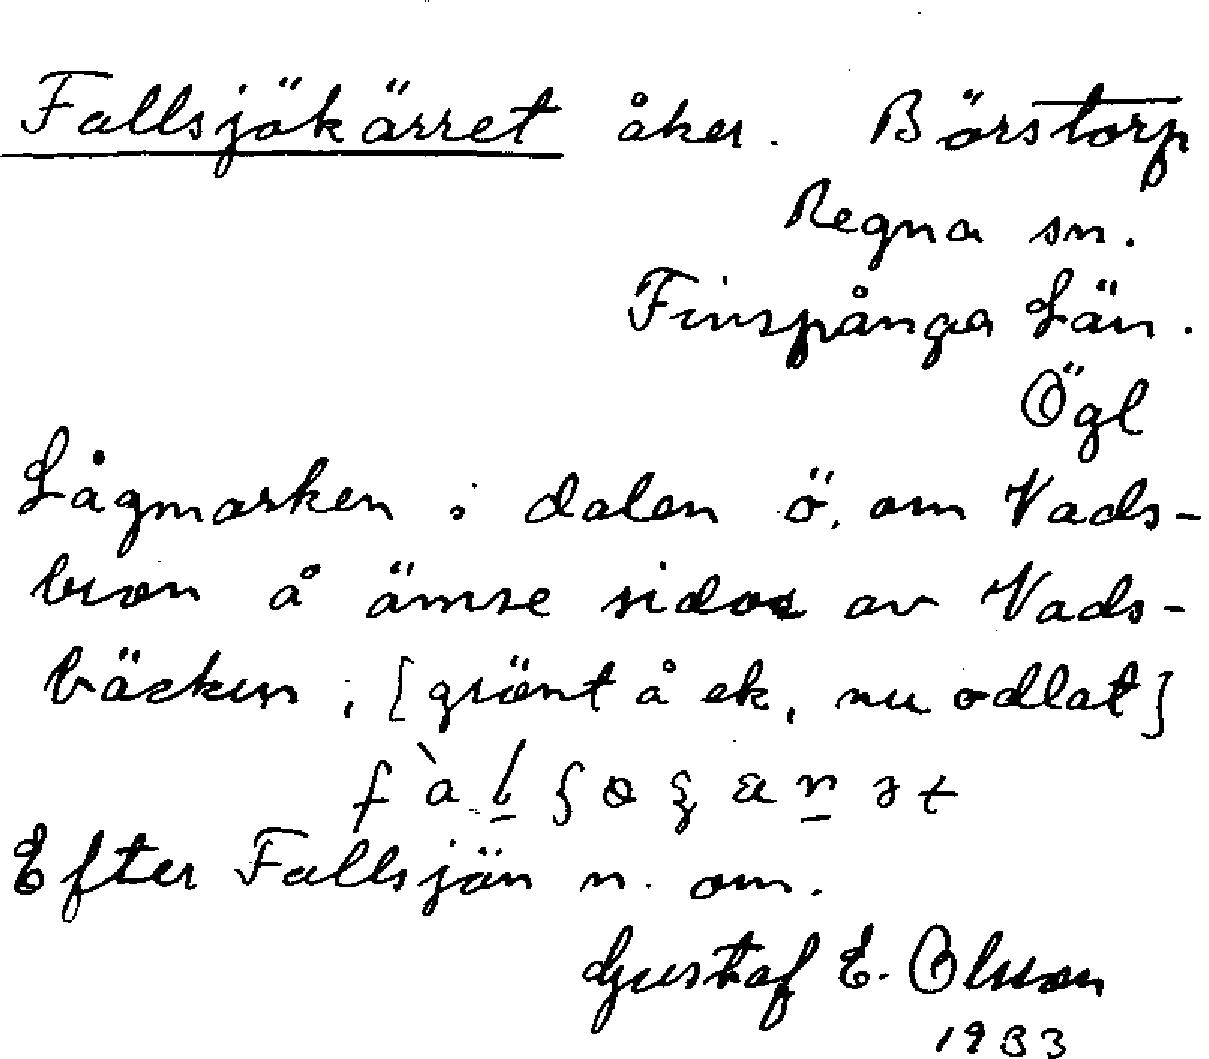 Fallsjökärret åker. Börstorp
Regna sn.
Finspånga Län.
Ögl
Lågmarken i dalen ö. om Vads-
bron å ömse sidor av Vads-
bäcken, [grönt å ek, nu odlat]
Efter Fallsjön n. om.
Gustaf E. Olsson
1933